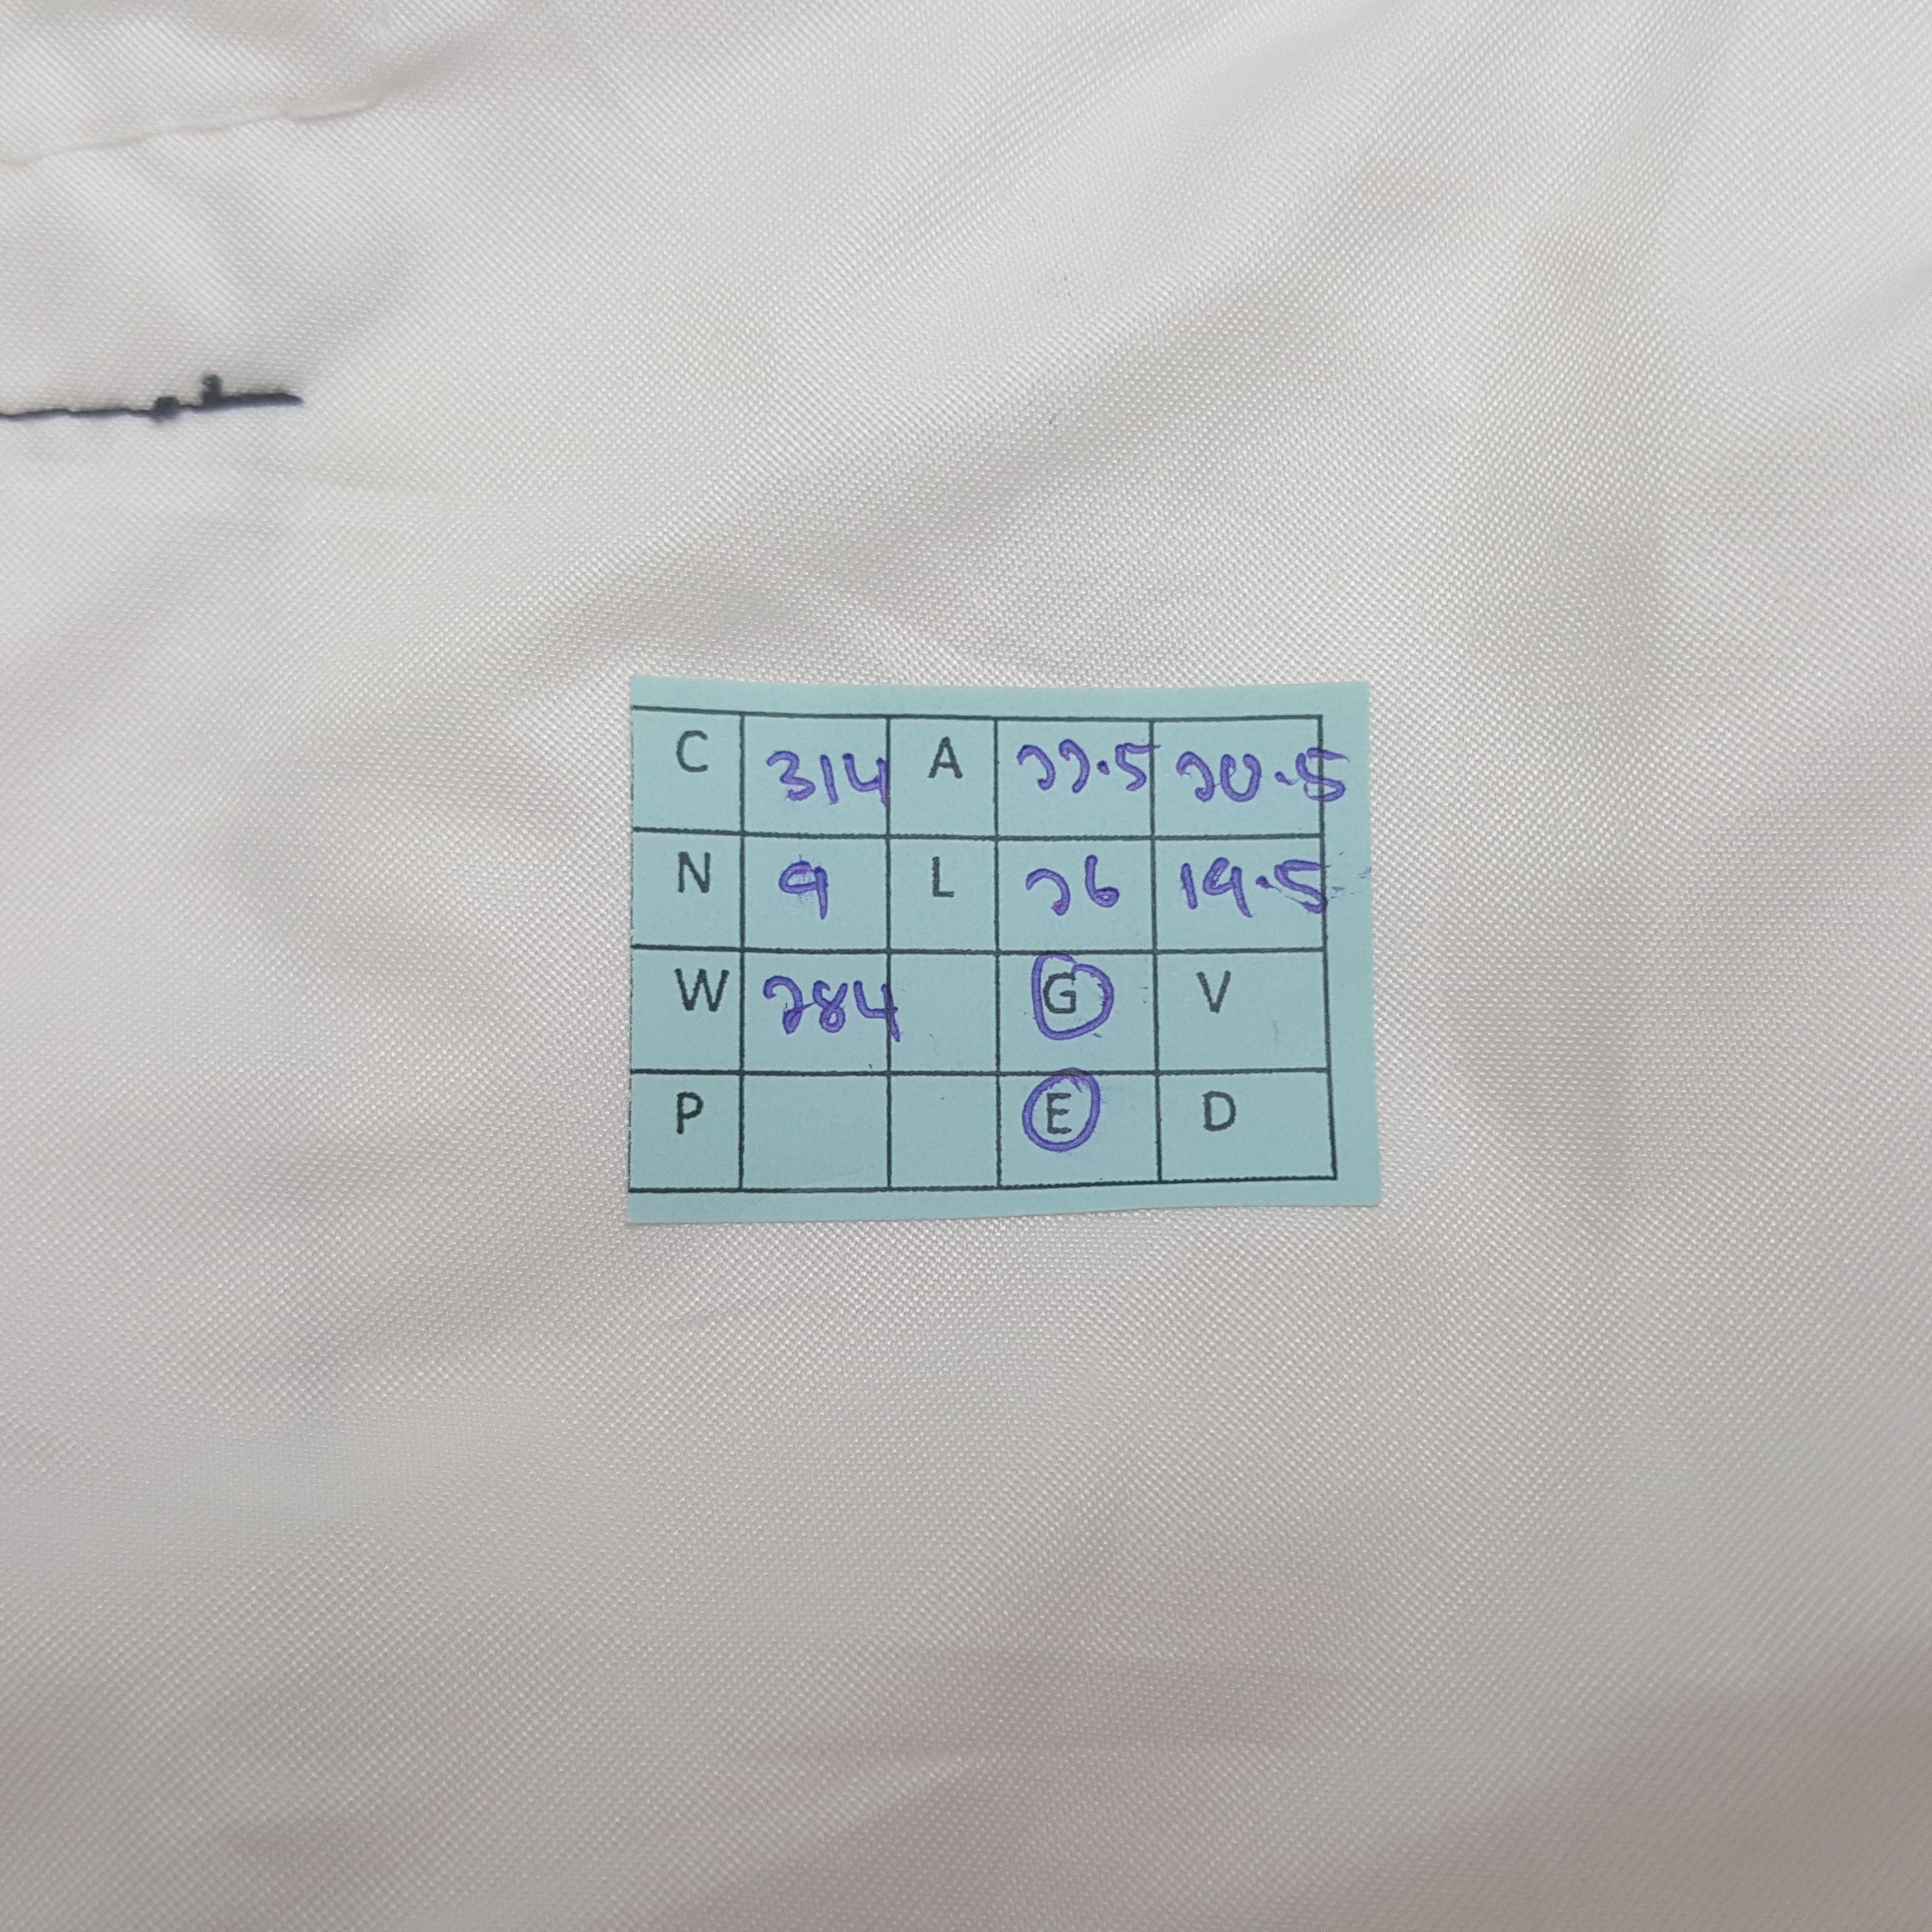 C 314 A 22.5 20.5
N 9 L 26 19.5
W 284 G V
P E D